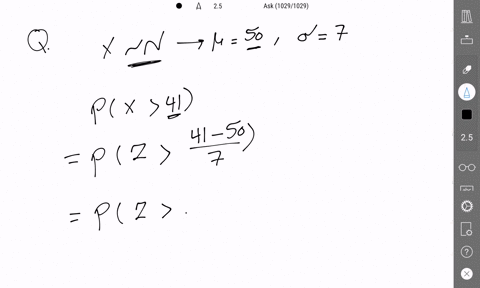 2.5 Ask (1029/1029)
Q. X ~N → μ = 50, σ = 7
P(X > 41)
= P(Z > 41-50/7)
= P(Z > .
2.5